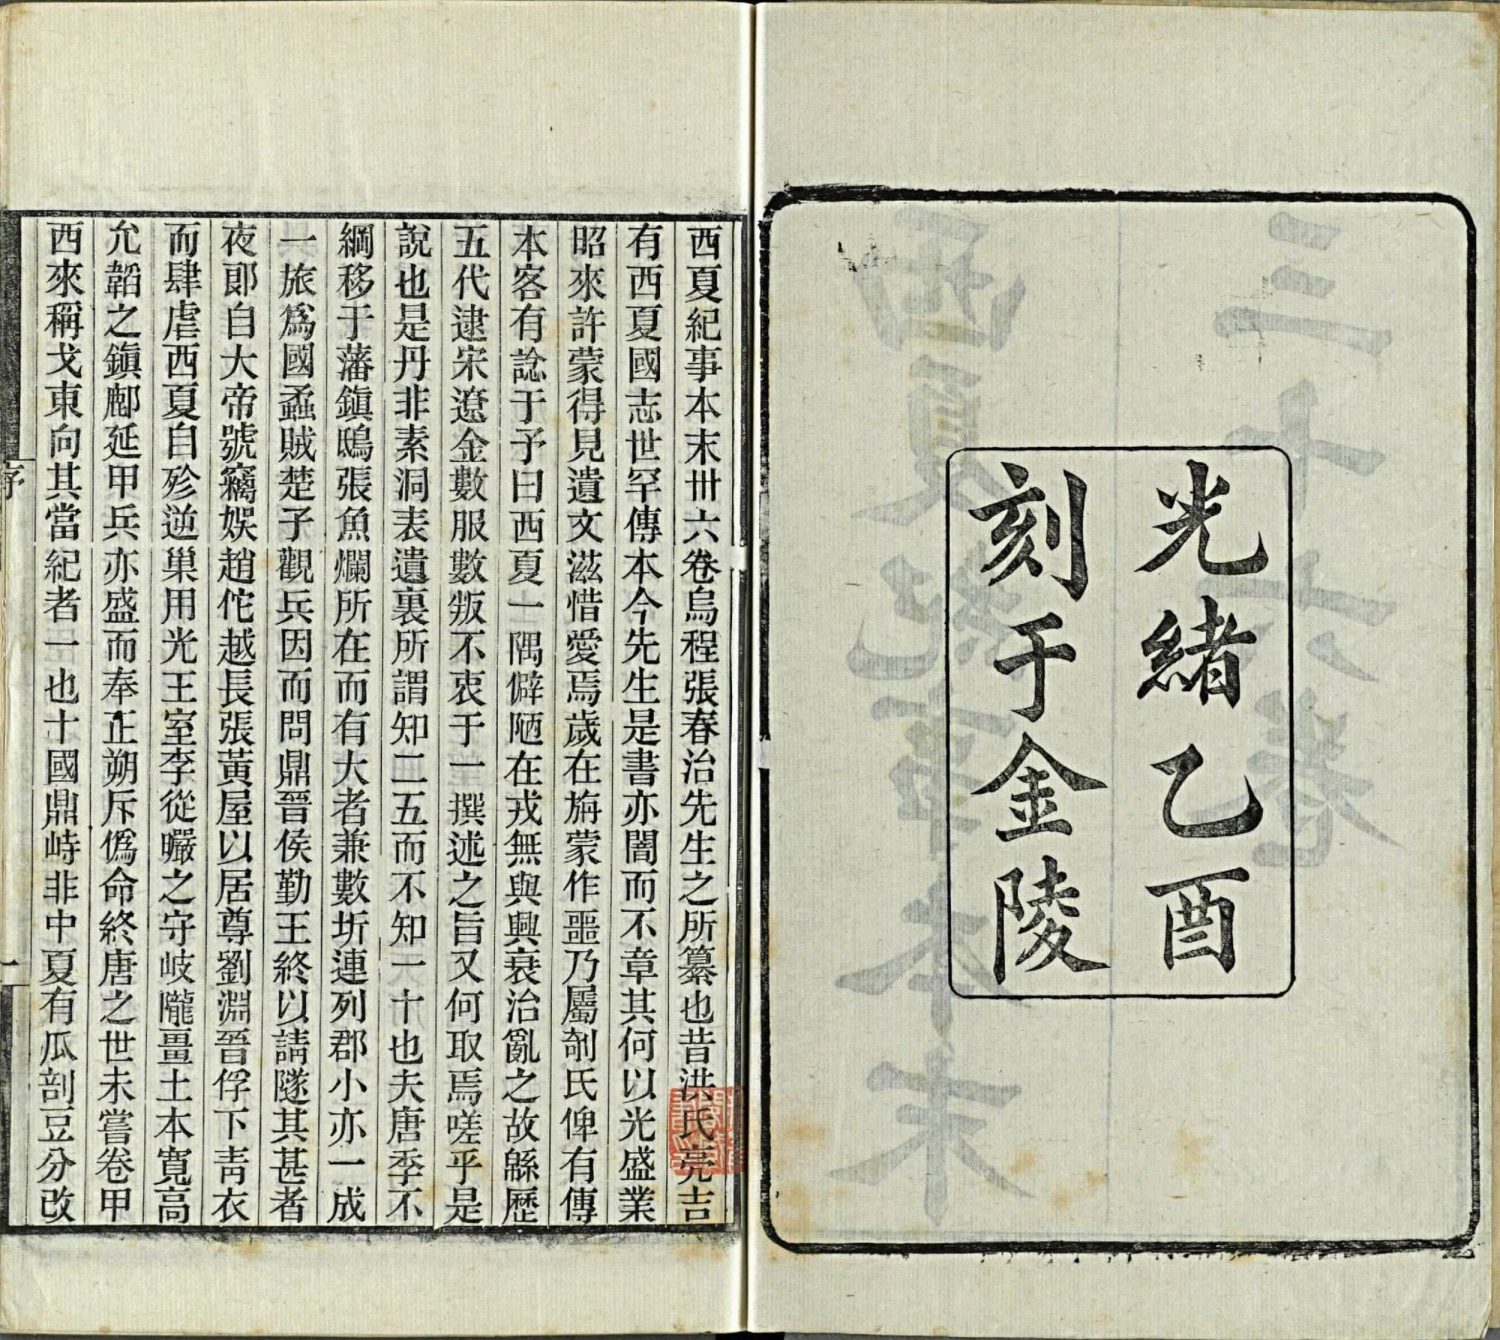 光緒乙酉
刻于金陵
西夏紀事本末卅六卷烏程張春治先生之所纂也昔洪氏亮吉
有西夏國志世罕傳本今先生是書亦闇而不章其何以光盛業
昭來許蒙得見遺文滋惜愛焉歲在旃蒙作噩乃屬剞氏俾有傳
本客有諗于予曰西夏一隅僻陋在戎無與興衰治亂之故緜歷
五代逮宋遼金數服數叛不衷于一撰述之旨又何取焉嗟乎是
說也是丹非素洞表遺裏所謂知二五而不知一十也夫唐季不
綱移于藩鎮鴟張魚爛所在而有大者兼數圻連列郡小亦一成
一旅爲國蟊賊楚子觀兵因而問鼎晉侯勤王終以請隧其甚者
夜郎自大帝號竊娛趙佗越長張黃屋以居尊劉淵晉俘下靑衣
而肆虐西夏自殄逆巢用光王室李從曮之守岐隴畺土本寬高
允韜之鎮鄜延甲兵亦盛而奉正朔斥僞命終唐之世未嘗卷甲
西來稱戈東向其當紀者一也十國鼎峙非中夏有瓜剖豆分改
序
一